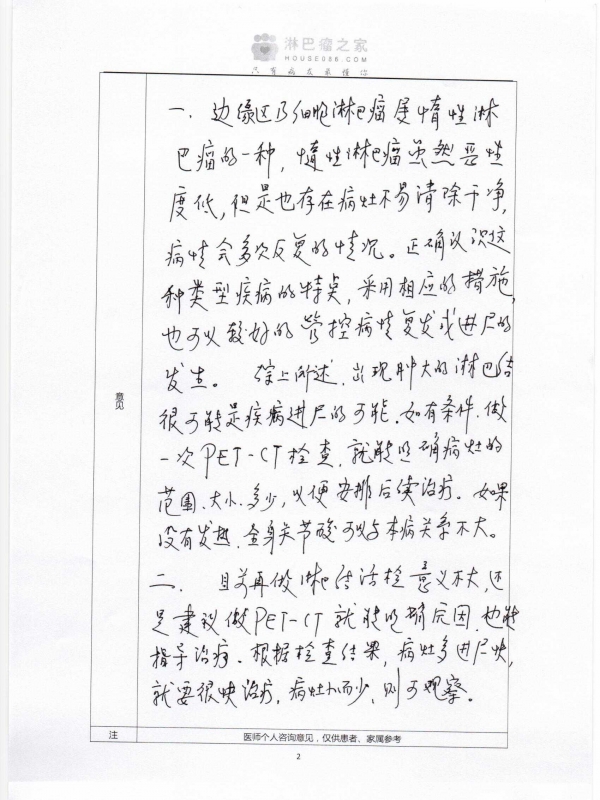 淋巴瘤之家
HOUSE086.COM
只有病友最懂你
一.边缘区B细胞淋巴瘤是惰性淋
巴瘤的一种,惰性淋巴瘤虽然恶性
度低,但是也存在病灶不易清除干净,
病情会多次反复的情况。正确认识这
种类型疾病的特点,采用相应的措施,
也可以较好的管控病情复发或进展的
发生。 综上所述.出现肿大的淋巴结
很可能是疾病进展的可能.如有条件.做
一次PET-CT检查.就能明确病灶的
范围.大小.多少,以便安排后续治疗.如果
没有发热.全身关节酸可以与本病关系不大。
二. 目前再做淋巴结活检意义不大,还
是建议做PET-CT就能明确原因,也能
指导治疗.根据检查结果,病灶多进展快,
就要很快治疗,病灶小而少,则可观察。
意见
注 医师个人咨询意见,仅供患者、家属参考
2